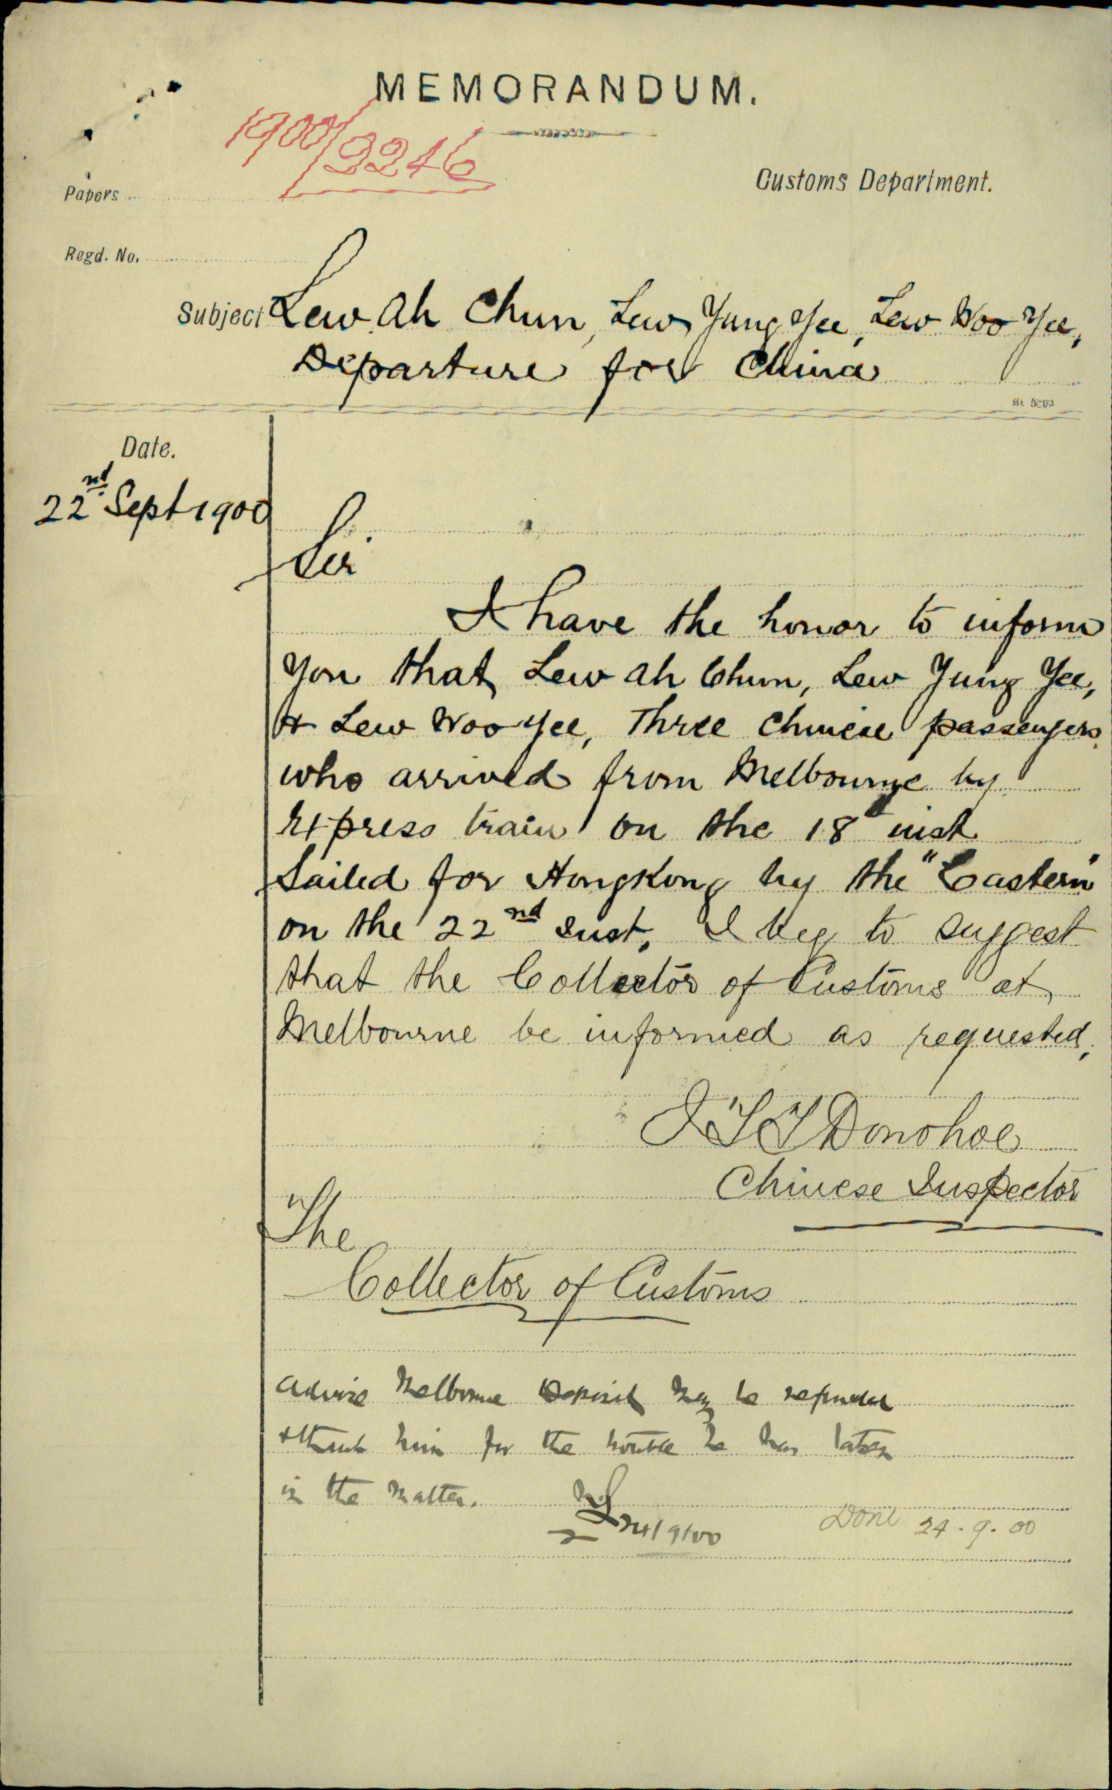 MEMORANDUM.
1900/3246
Customs Department.
Papers
Regd. No.
Subject Lew Ah Chun, Lew Yung Yee, Lew Woo Yee,
Departure for China
Date.
22nd Sept 1900
Sir
I have the honor to inform
you that Lew Ah Chun, Lew Yung Yee,
& Lew Woo Yee, Three Chinese passengers
who arrived from Melbourne by
Express train on the 18 inst
Sailed for HongKong by the "Eastern"
on the 22nd Inst. I beg to suggest
that the Collector of Customs at
Melbourne be informed as requested.
J T T Donohoe
Chinese Inspector
The
Collector of Customs
Advise Melbourne Deposit may be refunded
& thank him for the trouble he has taken
in the matter.
24/9/00
Done 24.9.00